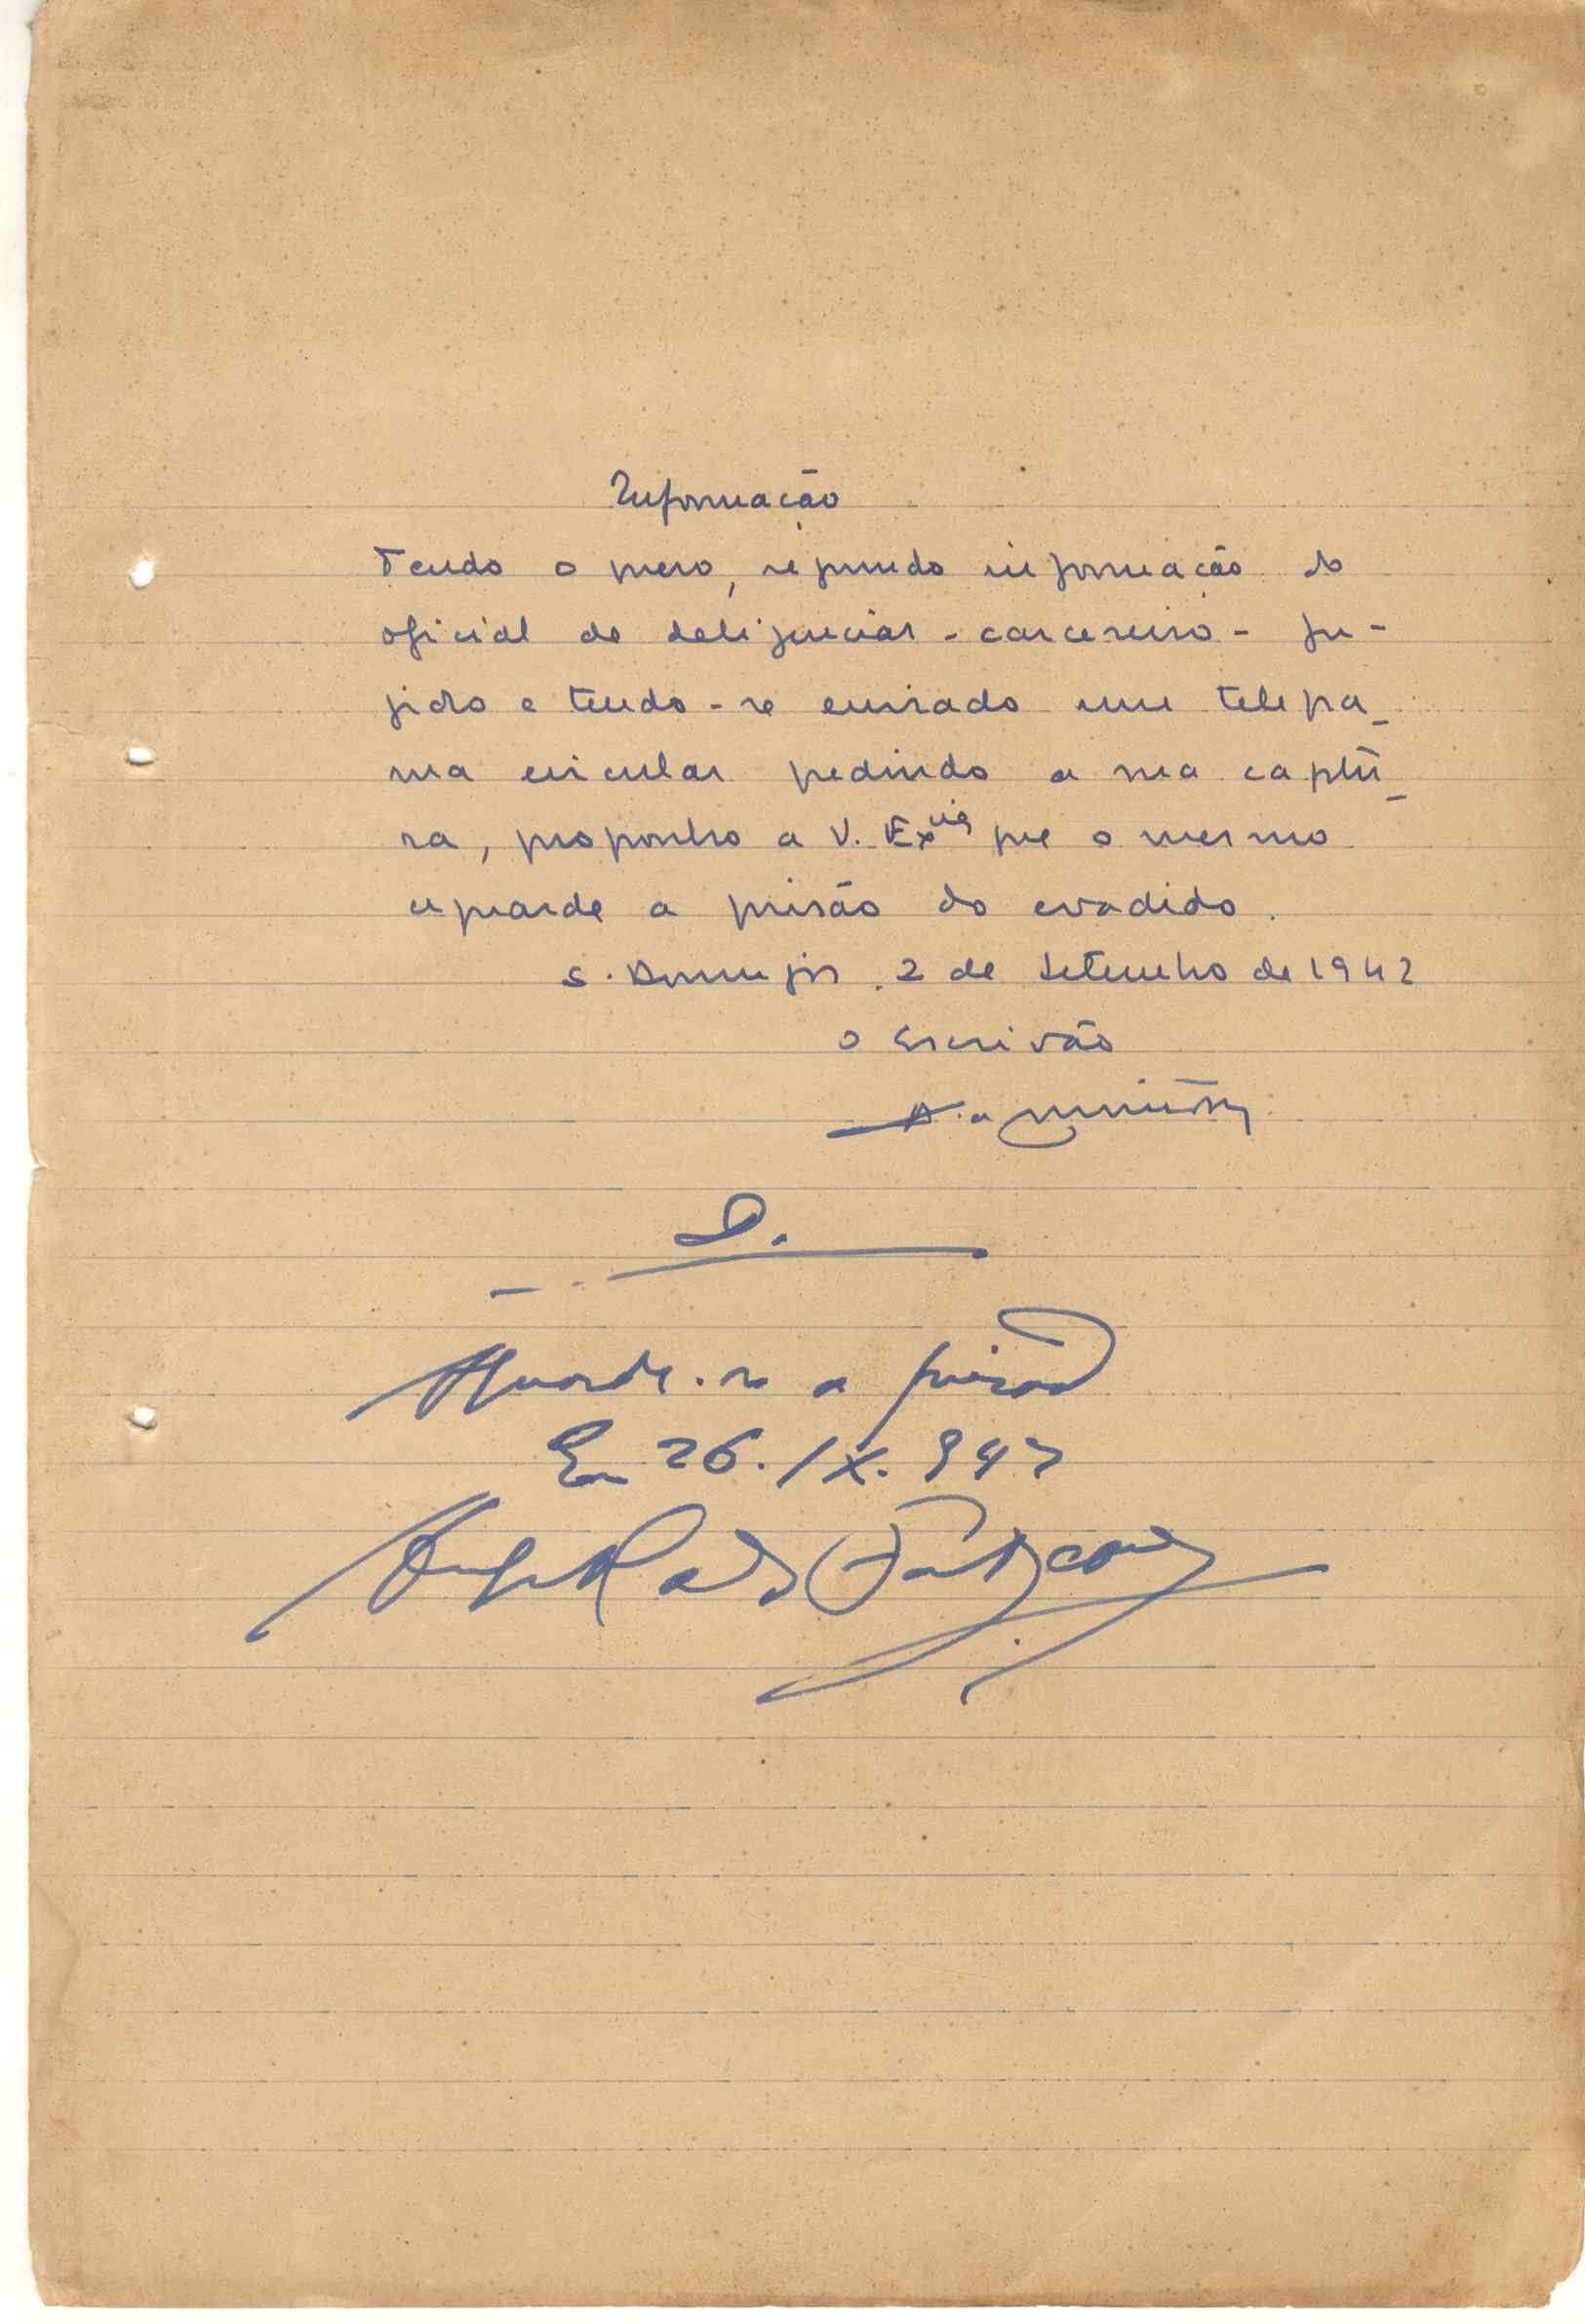 Informação
Tendo o preso, segundo informação do
oficial de deligencias - carcereiro - fu-
gido e tendo-se enviado um telegra-
ma circular pedindo a sua captu-
ra, proponho a V. Exª que o mesmo
aguarde a prisão do evadido.
S. Domingos, 2 de Setembro de 1942
O Escrivão
D.
Aguarde-se a prisão
Em 26.IX.942